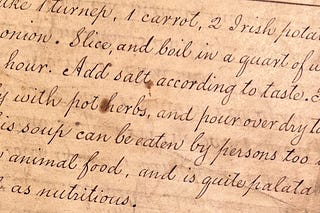 1 turnep, 1 carrot, 2 Irish
onion. Slice, and boil in a quart of
hour. Add salt, according to taste.
with pot herbs, and pour over dry
soup can be eaten by persons too
animal food, and is quite
as nutritious.